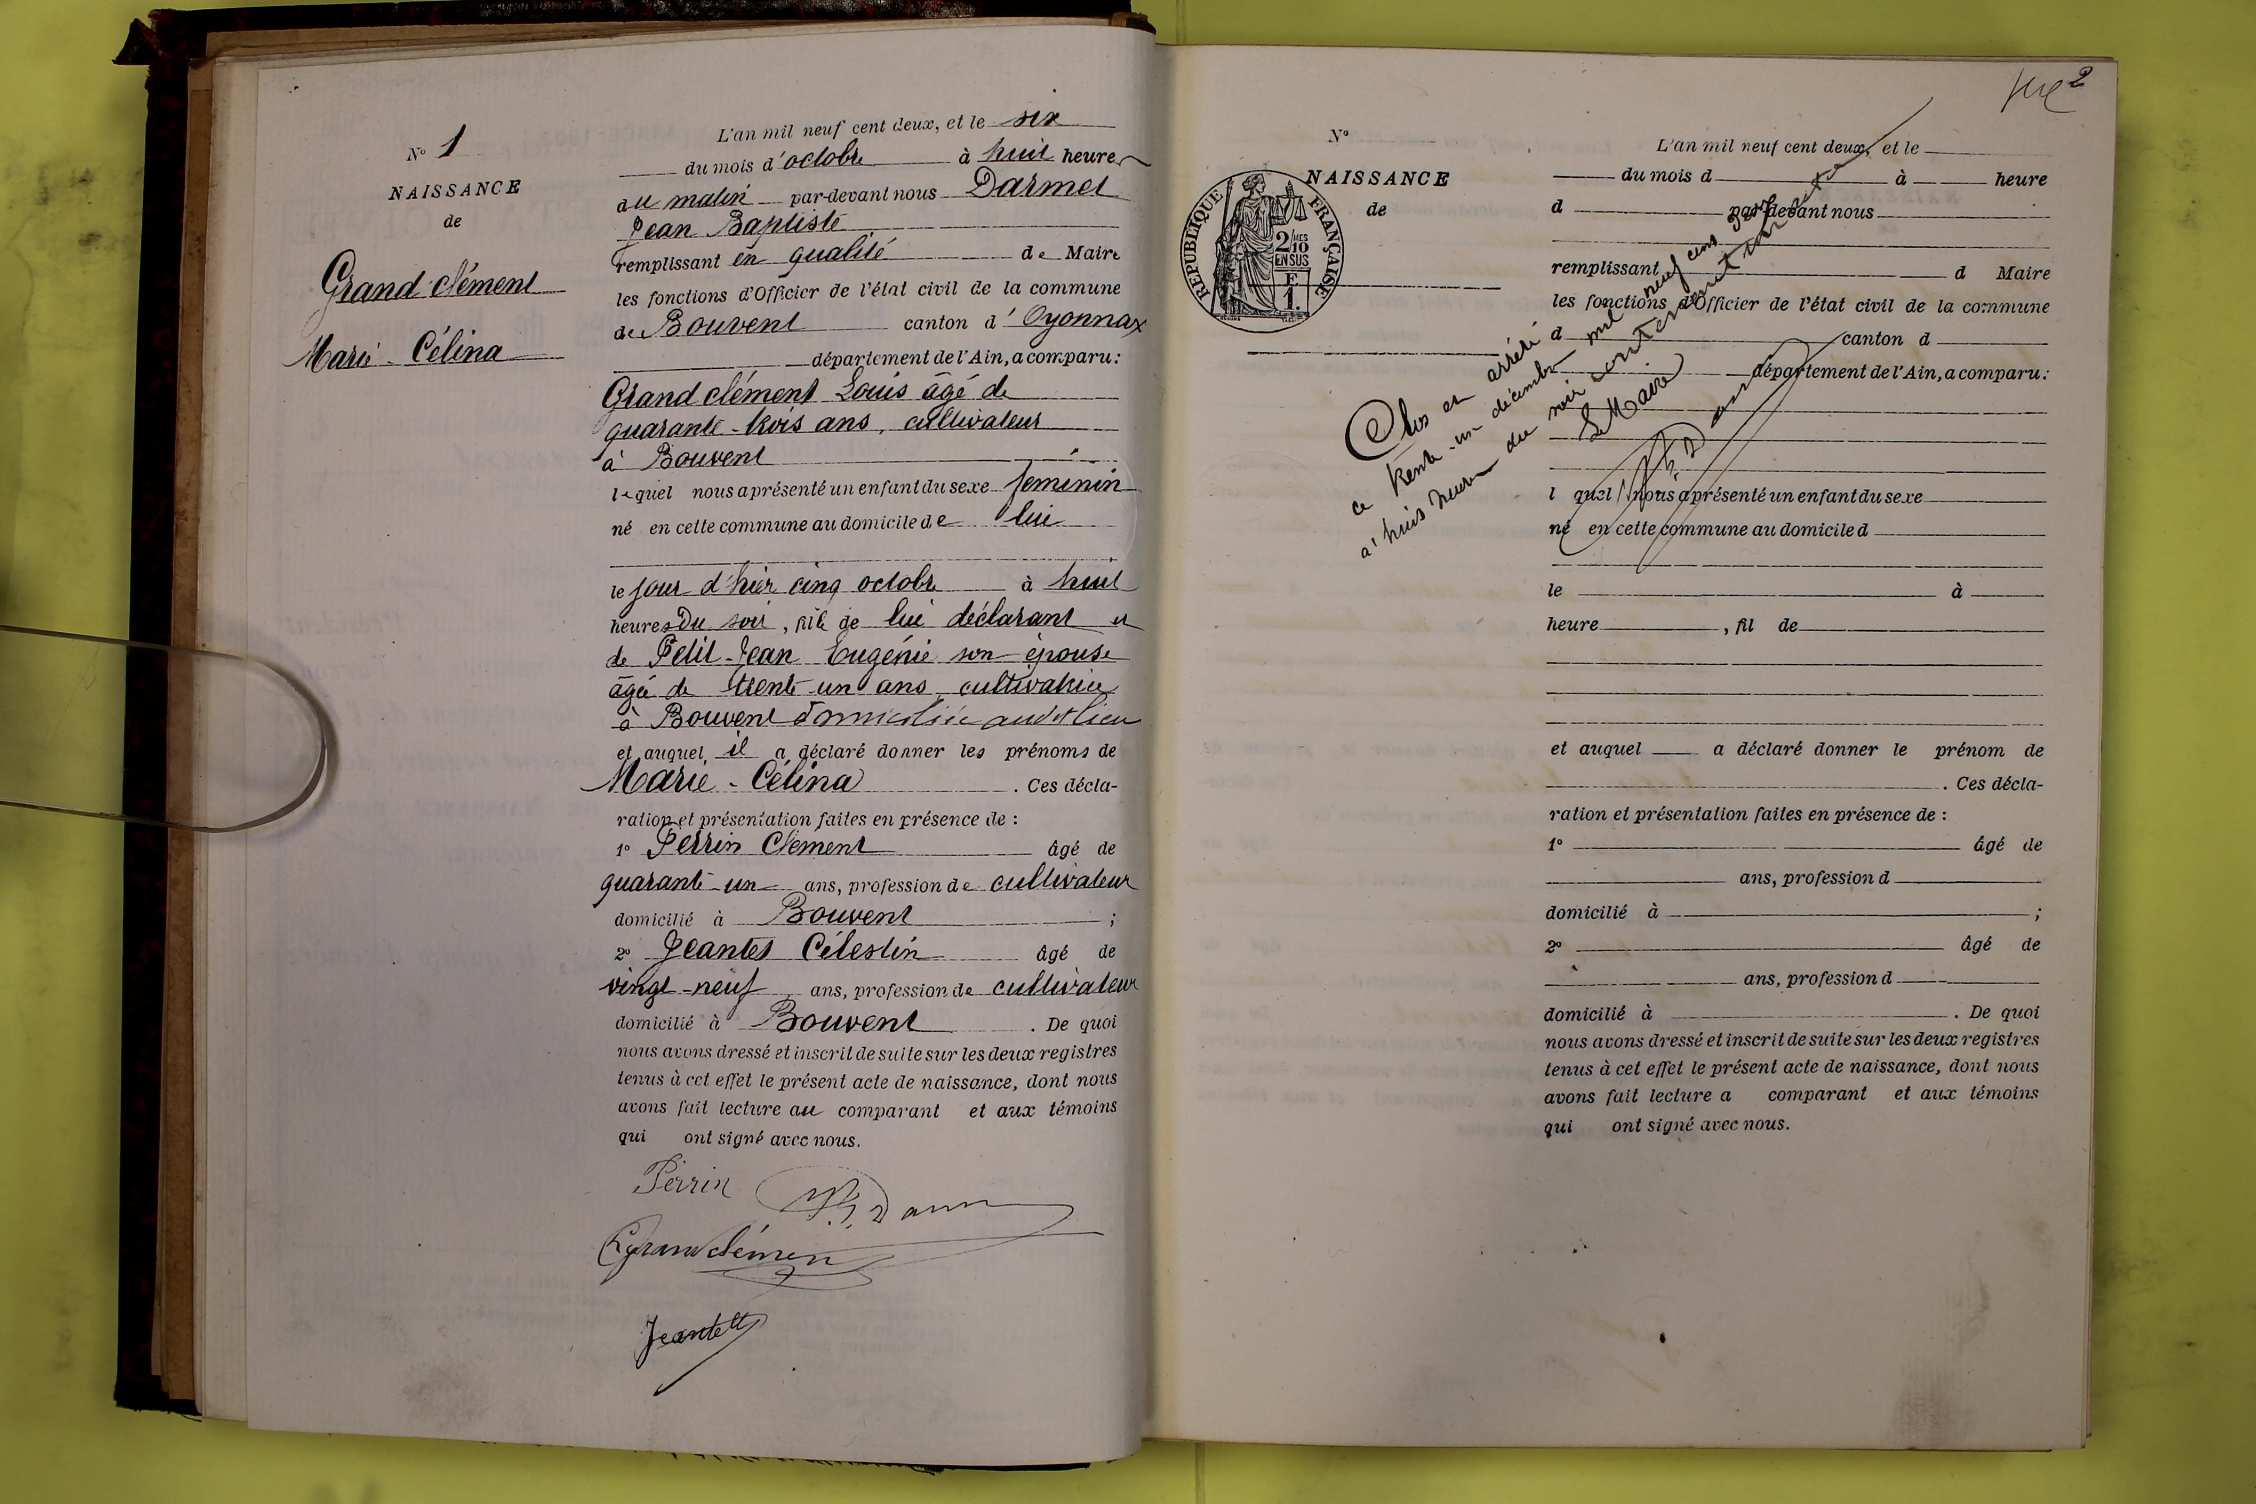 N° 1
NAISSANCE
de
Grand clément
Marie - Célina
L'an mil neuf cent deux, et le six
du mois d'octobre à huit heures
du matin par-devant nous Darmet
Jean Baptiste
remplissant en qualité de Maire
les fonctions d'Officier de l'état civil de la commune
de Bouvent canton d'Oyonnax
département de l'Ain, a comparu :
Grand clément Louis âgé de
quarante-trois ans, cultivateur
à Bouvent
lequel nous a présenté un enfant du sexe féminin
né en cette commune au domicile de lui
le jour d'hier cinq octobre à huit
heures Du soir, fille de lui déclarant et
de Petit-Jean Eugénie son épouse
âgée de trente-un ans, cultivatrice
à Bouvent domiciliée audit lieu
et auquel il a déclaré donner les prénoms de
Marie - Célina . Ces décla-
ration et présentation faites en présence de :
1° Perrin Clément âgé de
quarante-un ans, profession de cultivateur
domicilié à Bouvent ;
2° Jeantet Célestin âgé de
vingt-neuf ans, profession de cultivateur
domicilié à Bouvent . De quoi
nous avons dressé et inscrit de suite sur les deux registres
tenus à cet effet le présent acte de naissance, dont nous
avons fait lecture au comparant et aux témoins
qui ont signé avec nous.
Perrin
Grandclément
Jeantet
2
N°
NAISSANCE
de
RÉPUBLIQUE FRANÇAISE
2/10 MES
EN SUS
F
1.
L'an mil neuf cent deux, et le
du mois d à heure
d par-devant nous
remplissant d Maire
les fonctions d'Officier de l'état civil de la commune
d canton d
département de l'Ain, a comparu :
l quel nous a présenté un enfant du sexe
né en cette commune au domicile d
le à
heure , fil de
et auquel a déclaré donner le prénom de
. Ces décla-
ration et présentation faites en présence de :
1° âgé de
ans, profession d
domicilié à ;
2° âgé de
ans, profession d
domicilié à . De quoi
nous avons dressé et inscrit de suite sur les deux registres
tenus à cet effet le présent acte de naissance, dont nous
avons fait lecture a comparant et aux témoins
qui ont signé avec nous.
Clos et arrêté
ce trente-un décembre mil neuf cent deux
à huit heures du soir contenant un acte
Le Maire